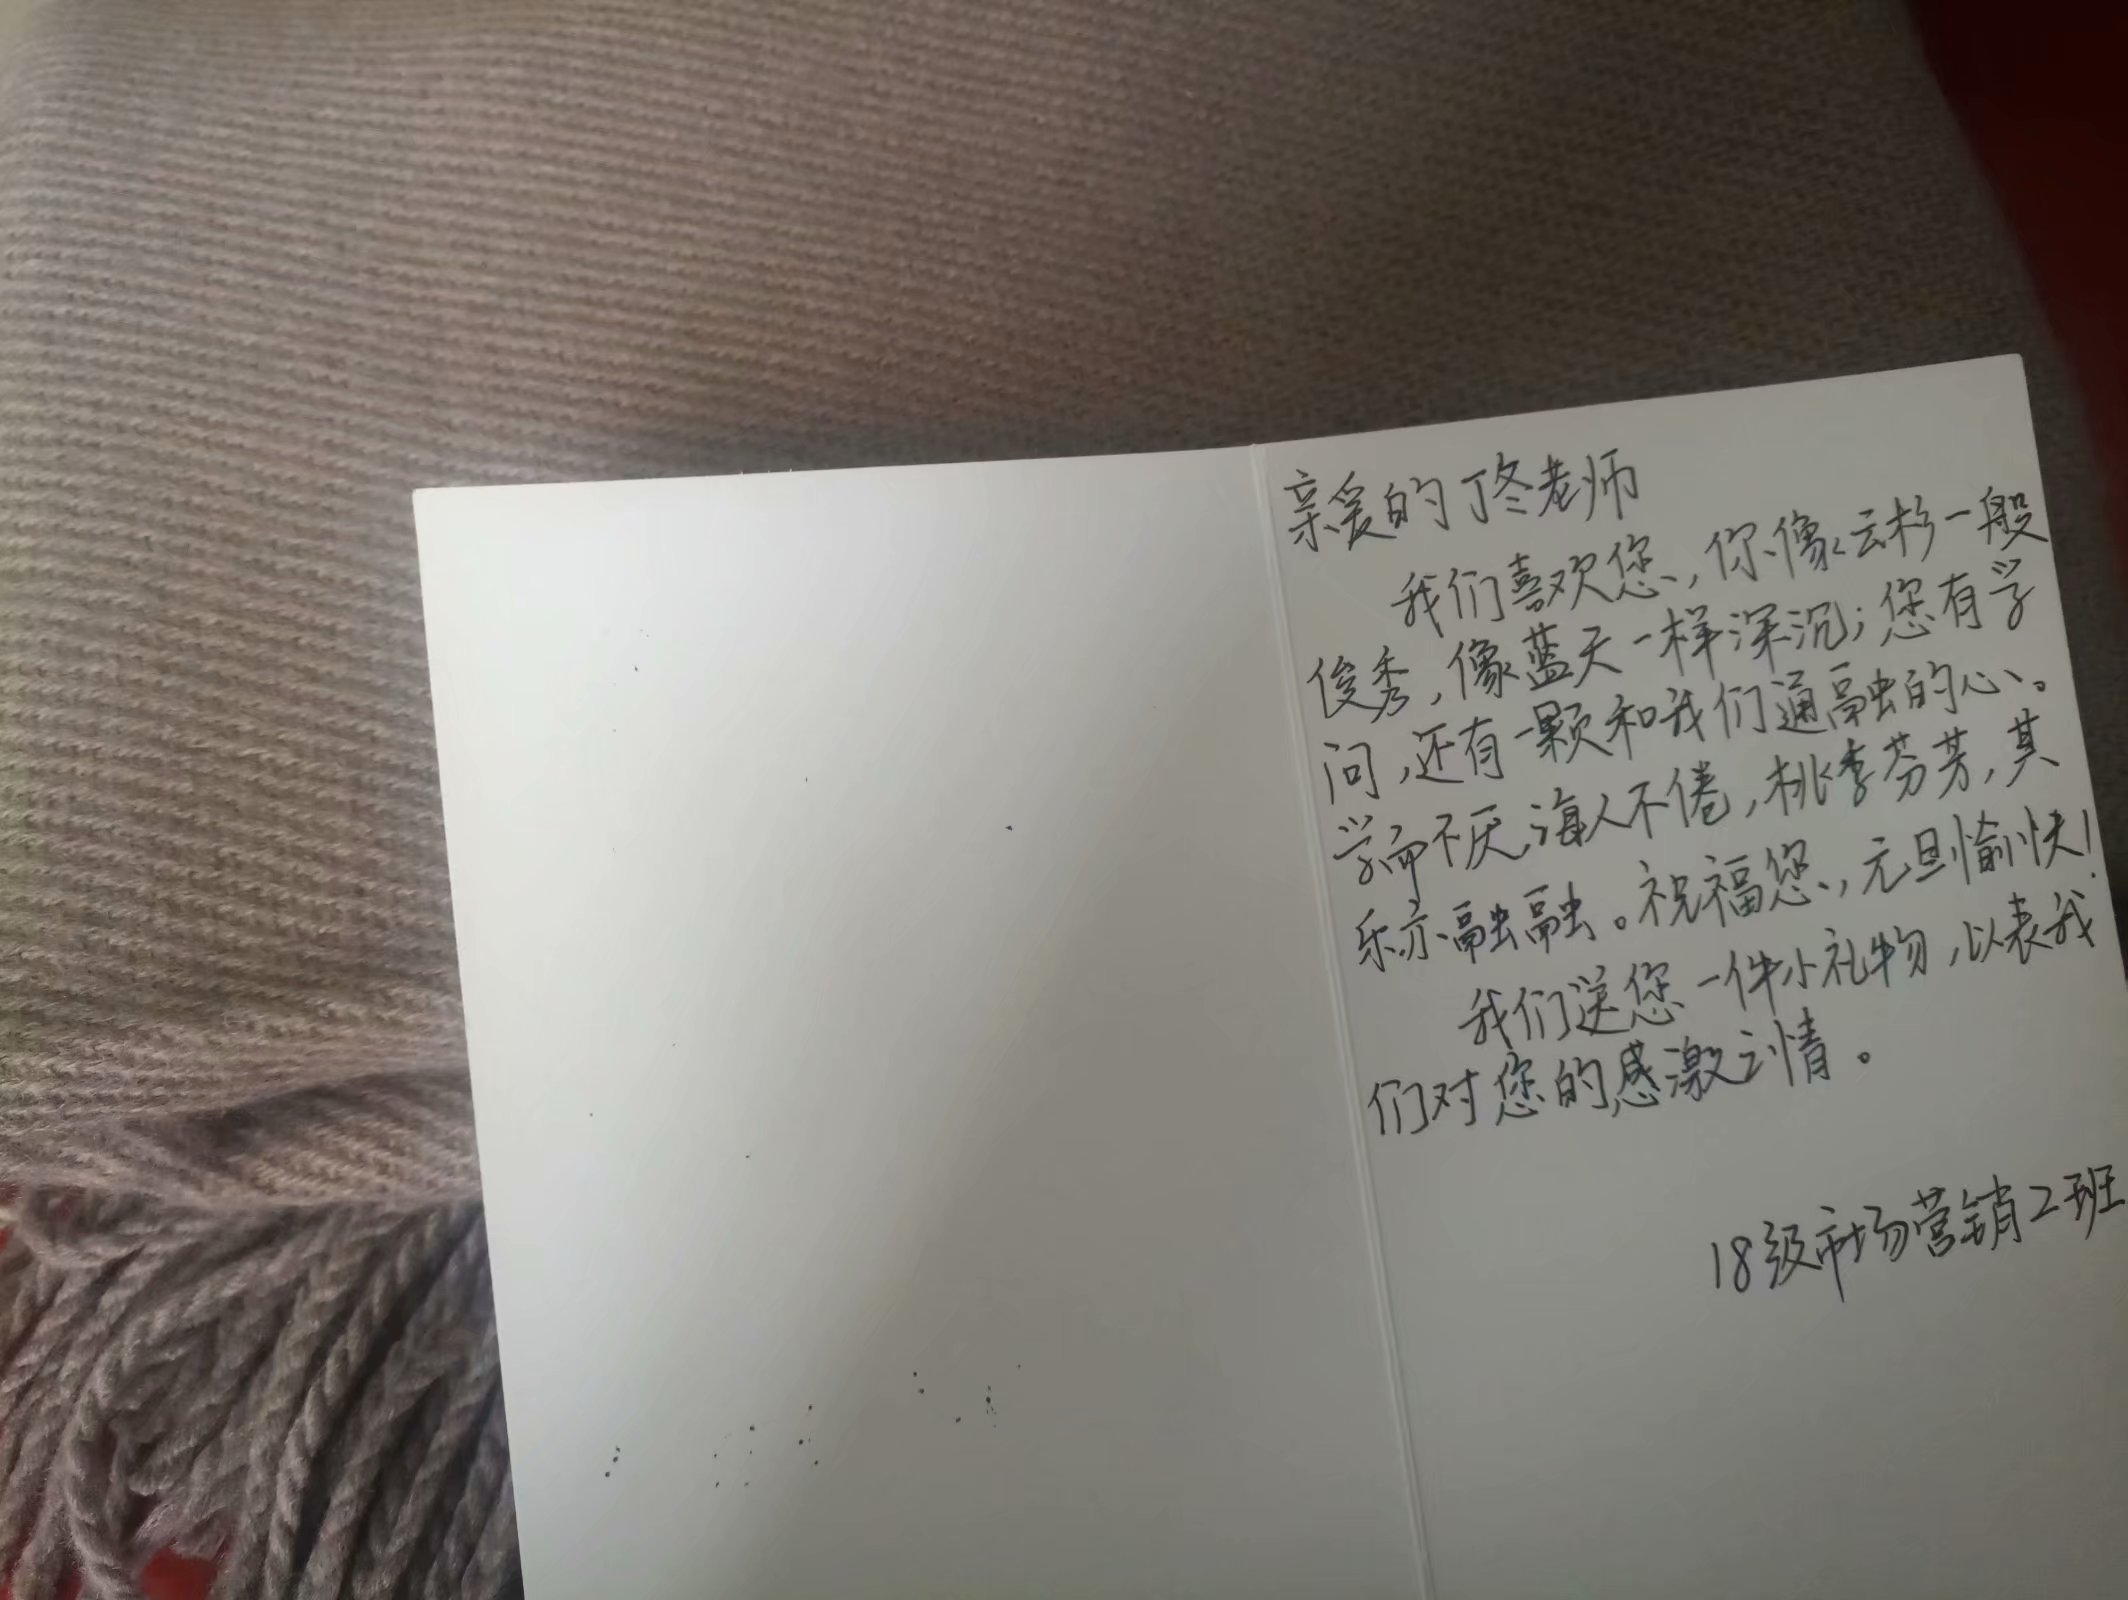 亲爱的丁冬老师
我们喜欢您，你像云杉一般
俊秀，像蓝天一样深沉；您有学
问，还有一颗和我们通融的心。
学而不厌，诲人不倦，桃李芬芳，其
乐亦融融。祝福您，元旦愉快！
我们送您一件小礼物，以表我
们对您的感激之情。
18级市场营销2班